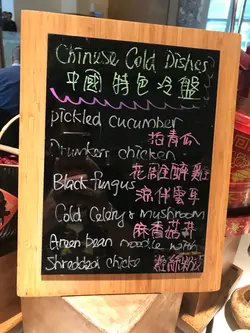 Chinese Cold Dishes
中國特色冷盤
pickled cucumber
拍青瓜
Drunken chicken
花雕醉雞
Black fungus
涼伴雲耳
Cold Celery & mushroom
麻香茄芹
Green bean noodle with
Shredded chicke
雞絲粉皮